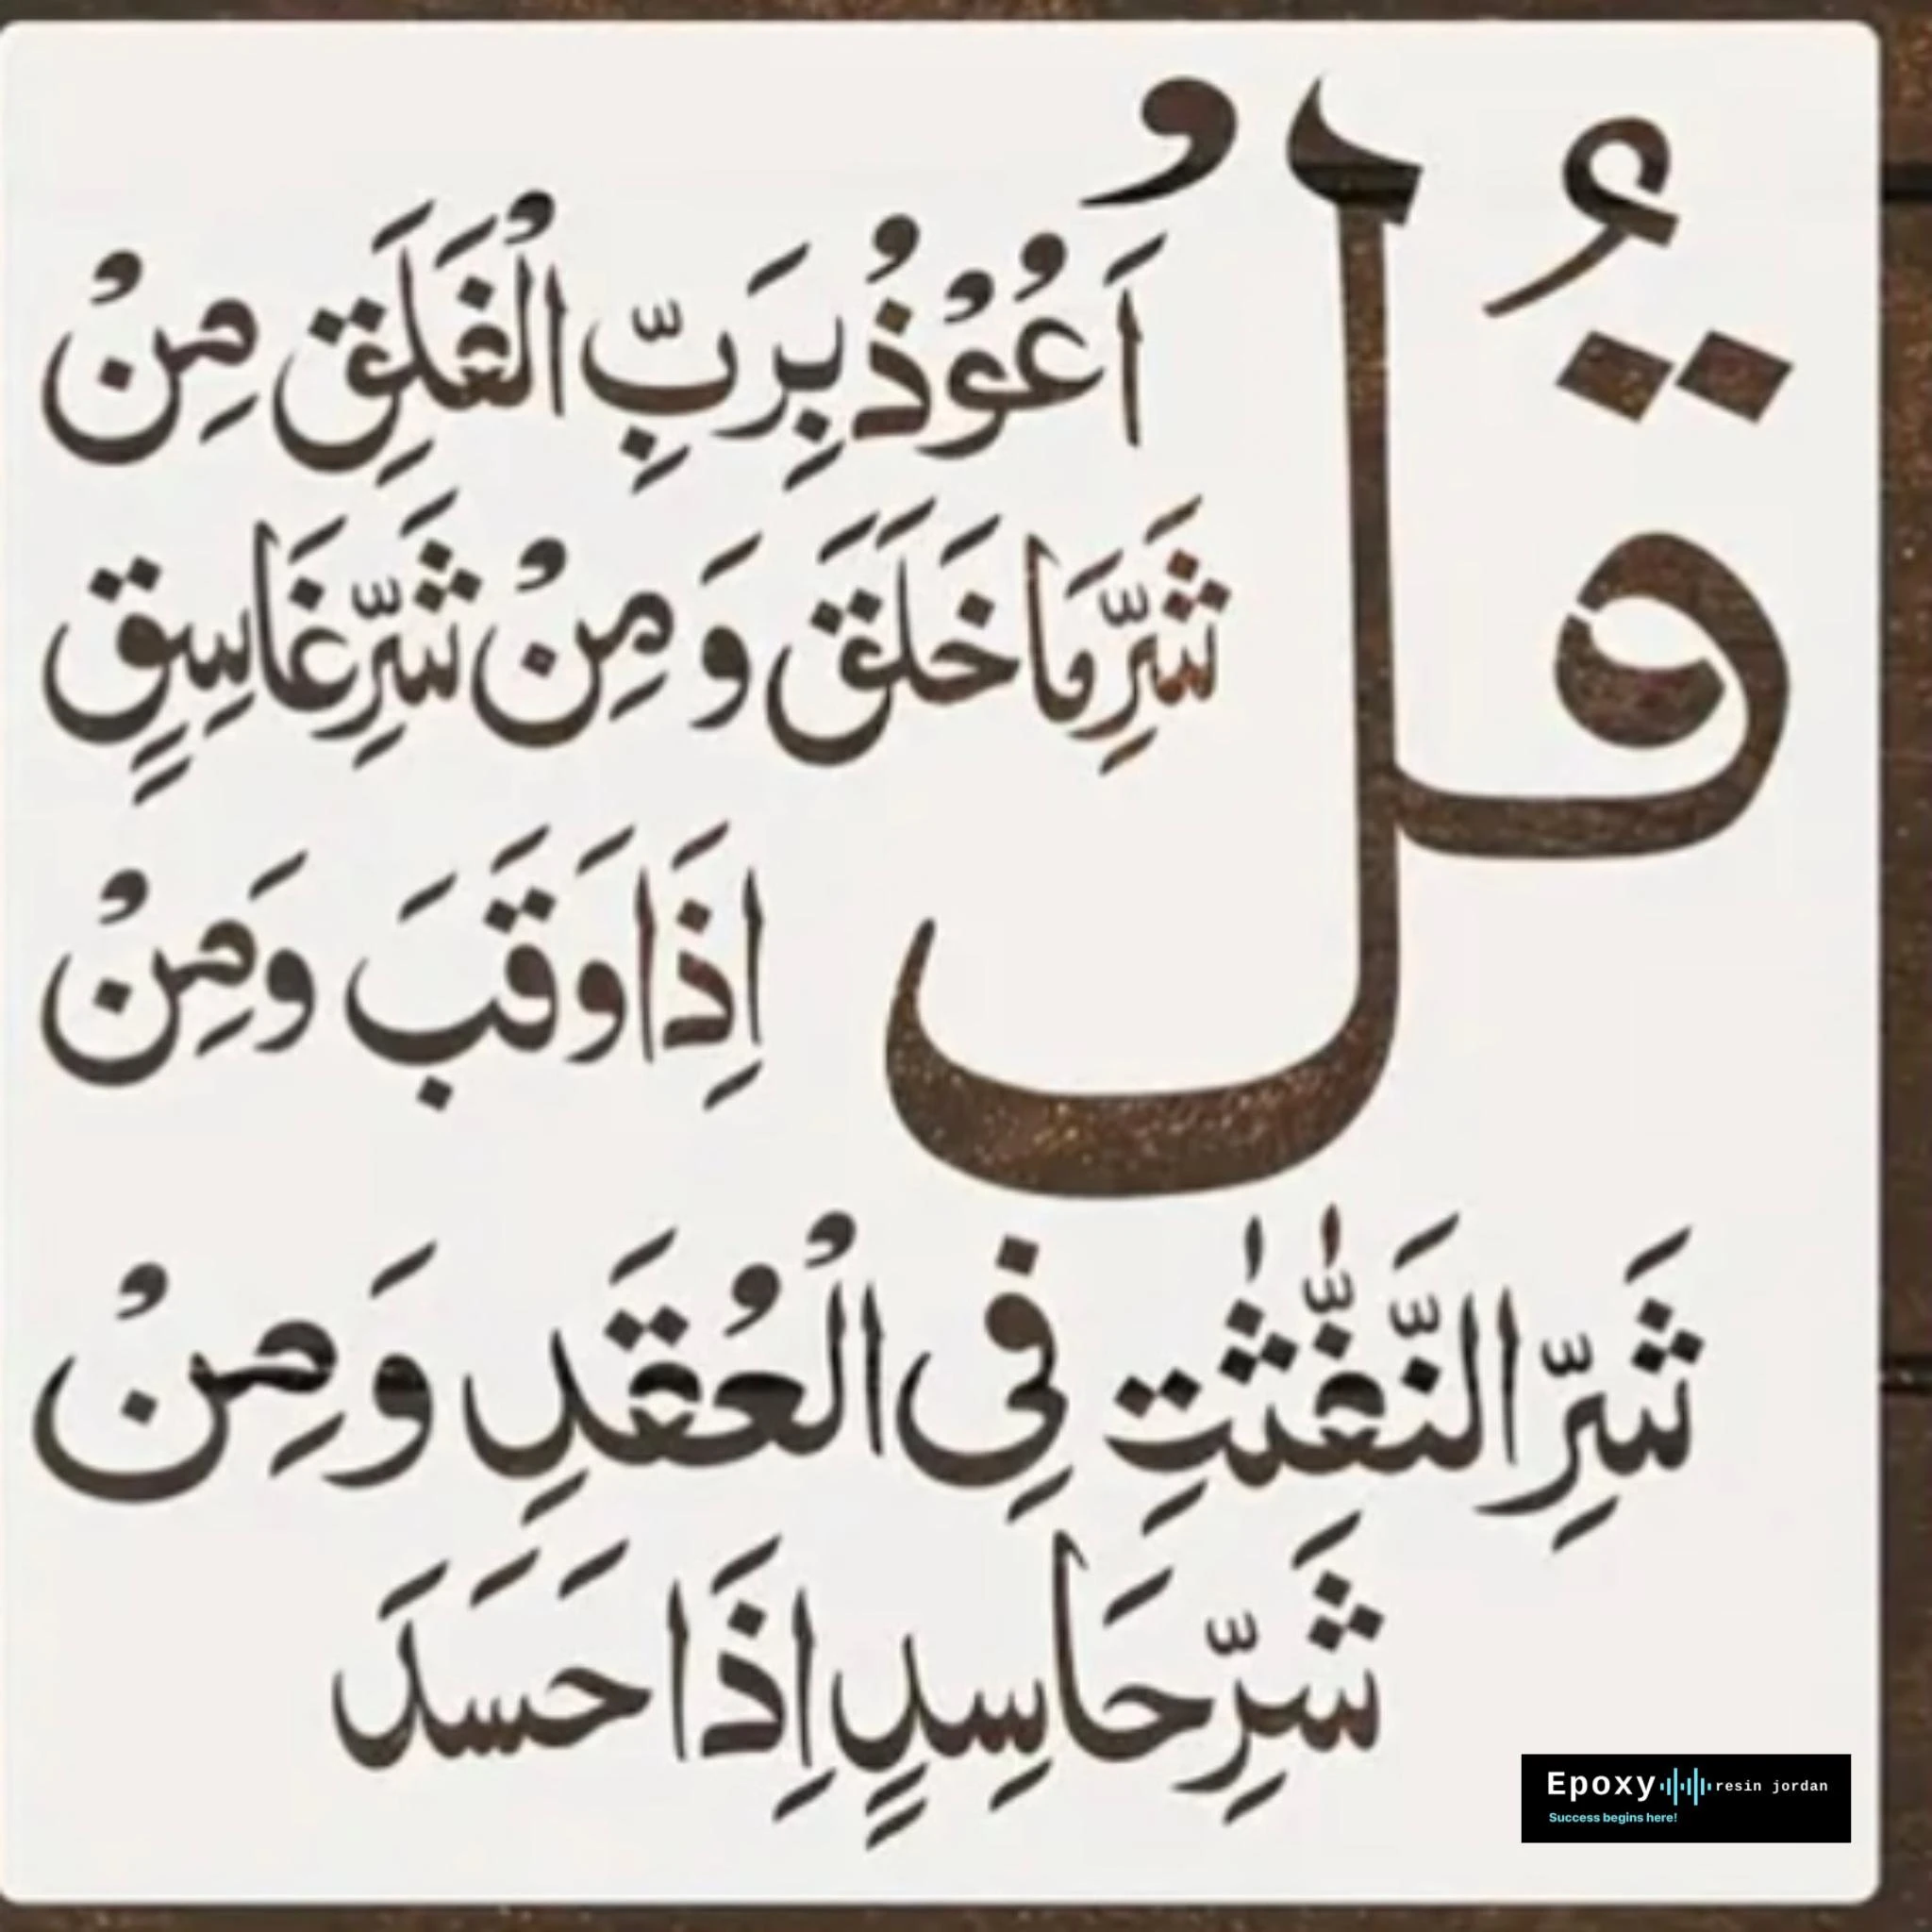 قُلْ
اَعُوْذُ بِرَبِّ الْفَلَقِ مِنْ
شَرِّ مَا خَلَقَ وَ مِنْ شَرِّ غَاسِقٍ
اِذَا وَقَبَ وَمِنْ
شَرِّ النَّفّٰثٰتِ فِى الْعُقَدِ وَمِنْ
شَرِّ حَاسِدٍ اِذَا حَسَدَ
Epoxy resin jordan
Success begins here!